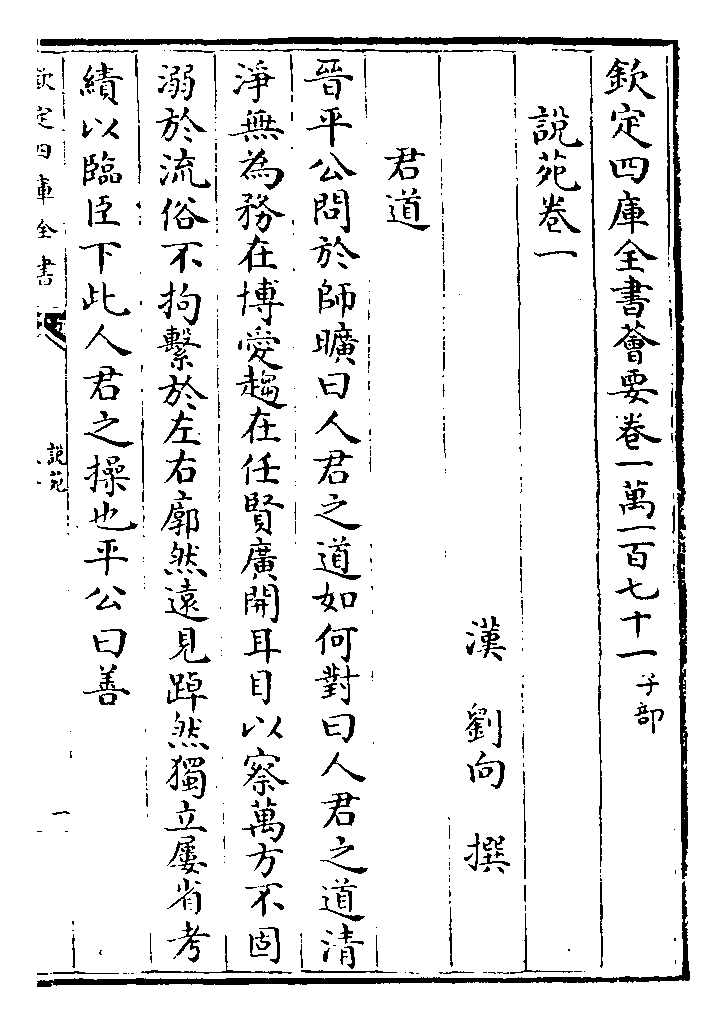 欽定四庫全書薈要卷一萬一百七十一子部
說苑卷一
漢劉向撰
君道
晉平公問於師曠曰人君之道如何對曰人君之道清
淨無為務在博愛趨在任賢廣開耳目以察萬方不固
溺於流俗不拘繫於左右廓然遠見踔然獨立屢省考
績以臨臣下此人君之操也平公曰善
欽定四庫全書
說苑
一